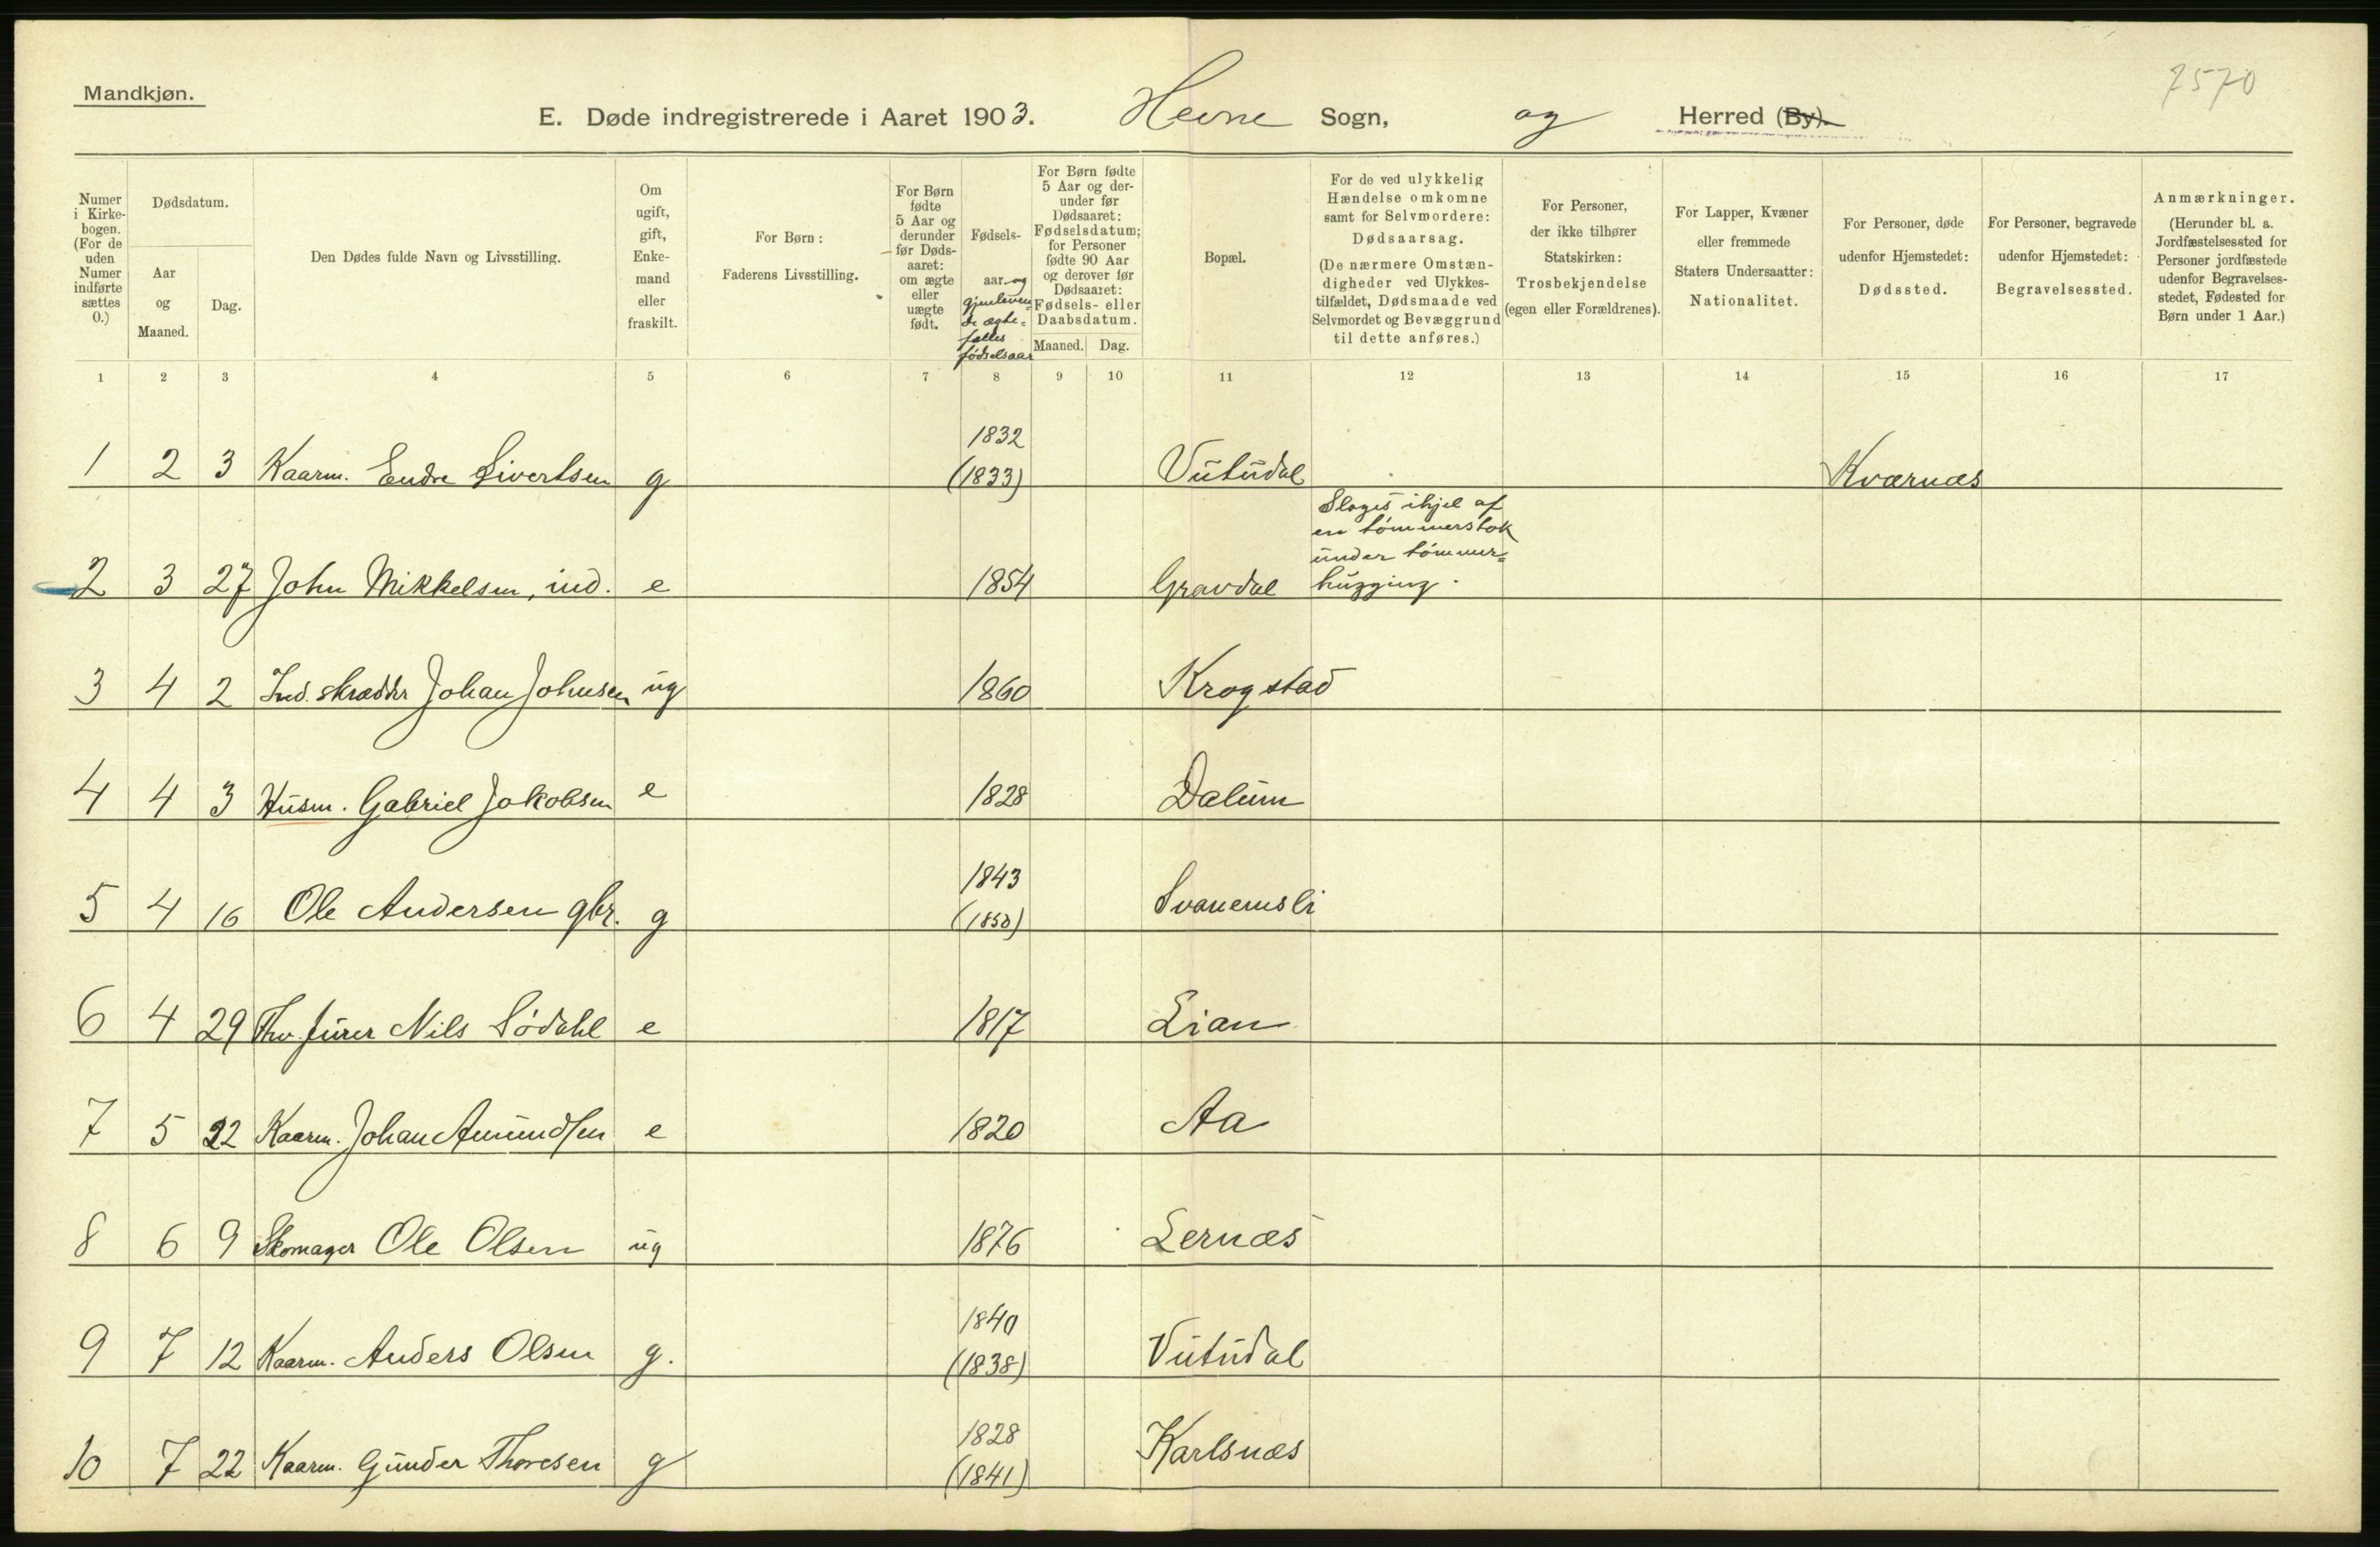 7570
Mandkjøn.
E. Døde indregistrerede i Aaret 1903. Hevne Sogn, og Herred (By).
Numer i Kirkebogen. (For de uden Numer indførte sættes 0.)
Dødsdatum.
Aar og Maaned.
Dag.
Den Dødes fulde Navn og Livsstilling.
Om ugift, gift, Enkemand eller fraskilt.
For Børn: Faderens Livsstilling.
For Børn fødte 5 Aar og derunder før Dødsaaret: om ægte eller uægte født.
Fødselsaar og gjenlevende ægtefælles fødselsaar
For Børn fødte 5 Aar og derunder før Dødsaaret: Fødselsdatum; for Personer fødte 90 Aar og derover før Dødsaaret: Fødsels- eller Daabsdatum.
Maaned. Dag.
Bopæl.
For de ved ulykkelig Hændelse omkomne samt for Selvmordere: Dødsaarsag. (De nærmere Omstændigheder ved Ulykkestilfældet, Dødsmaade ved Selvmordet og Bevæggrund til dette anføres.)
For Personer, der ikke tilhører Statskirken: Trosbekjendelse (egen eller Forældrenes).
For Lapper, Kvæner eller fremmede Staters Undersaatter: Nationalitet.
For Personer, døde udenfor Hjemstedet: Dødssted.
For Personer, begravede udenfor Hjemstedet: Begravelsessted.
Anmærkninger. (Herunder bl. a. Jordfæstelsessted for Personer jordfæstede udenfor Begravelsesstedet, Fødested for Børn under 1 Aar.)
1 2 3 4 5 6 7 8 9 10 11 12 13 14 15 16 17
1 2 3 Kaarm. Endre Sivertsen g 1832 (1833) Vutudal Kværnæs
2 3 27 John Mikkelsen, ind. e 1854 Gravdal Sloges ihjel af en tømmerstok under tømmerhugging.
3 4 2 Ind. skrædder Johan Johnsen ug 1860 Krogstad
4 4 3 Husm. Gabriel Jakobsen e 1828 Dalum
5 4 16 Ole Andersen gbr. g 1843 (1850) Svanemsli
6 4 29 Nils Sødahl e 1817 Lian
7 5 22 Kaarm. Johan Amundsen e 1820 Aa
8 6 9 Skomager Ole Olsen ug 1876 Lernæs
9 7 12 Kaarm. Anders Olsen g. 1840 (1838) Vutudal
10 7 22 Kaarm. Gunder Thoresen g 1828 (1841) Karlsnæs